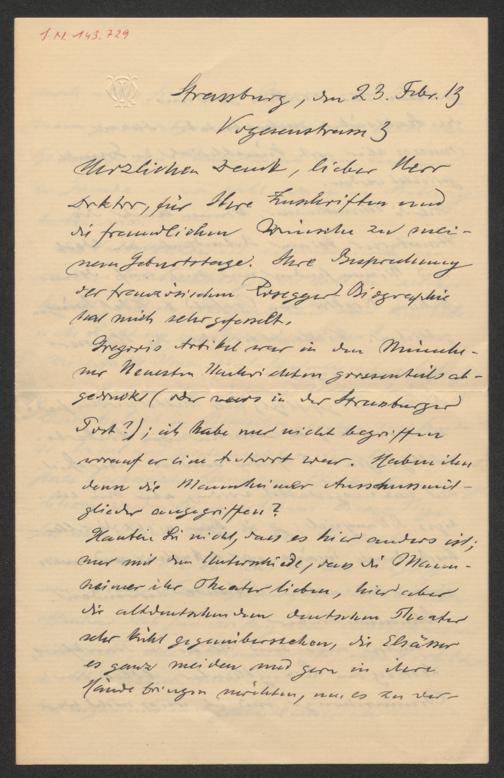 I.N. 143.729
Strassburg, den 23. Febr. 13
Vogesenstrasse 3
Herzlichen Dank, lieber Herr
Doktor, für Ihre Zuschriften und
die freundlichen Wünsche zu mei-
nem Geburtstage. Ihre Besprechung
der französischen Rosegger Biographie
hat mich sehr gefesselt.
Gregoris Artikel war in den Münche-
ner Neuesten Nachrichten grossenteils ab-
gedruckt (oder wars in der Strassburger
Post?); ich habe nur nicht begriffen
worauf er eine Antwort war. Haben ihn
denn die Mannheimer Ausschussmit-
glieder angegriffen?
Glauben Sie nicht, dass es hier anders ist;
nur mit dem Unterschiede, dass die Mann-
heimer ihr Theater lieben, hier aber
die altdeutschen dem deutschen Theater
sehr kühl gegenüberstehen, die Elsässer
es ganz meiden und gern in ihre
Hände bringen möchten, um es zu ver-